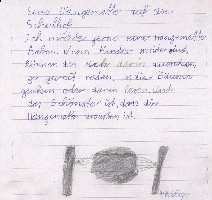 Eine Hängematte auf dem
Schulhof
Ich möchte gerne eine Hängematte
haben. Wenn Kinder müde sind,
können sie sich darin ausruhen,
zu zweit reden, in die Bäume
gucken oder darin lesen und
das Schönste ist, dass die
Hängematte draußen ist.